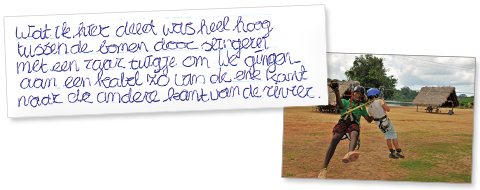 Wat ik hier deed was heel hoog
tussen de bomen door slingeren
met een raar tuigje om. We gingen
aan een kabel zo van de ene kant
naar de andere kant van de rivier.